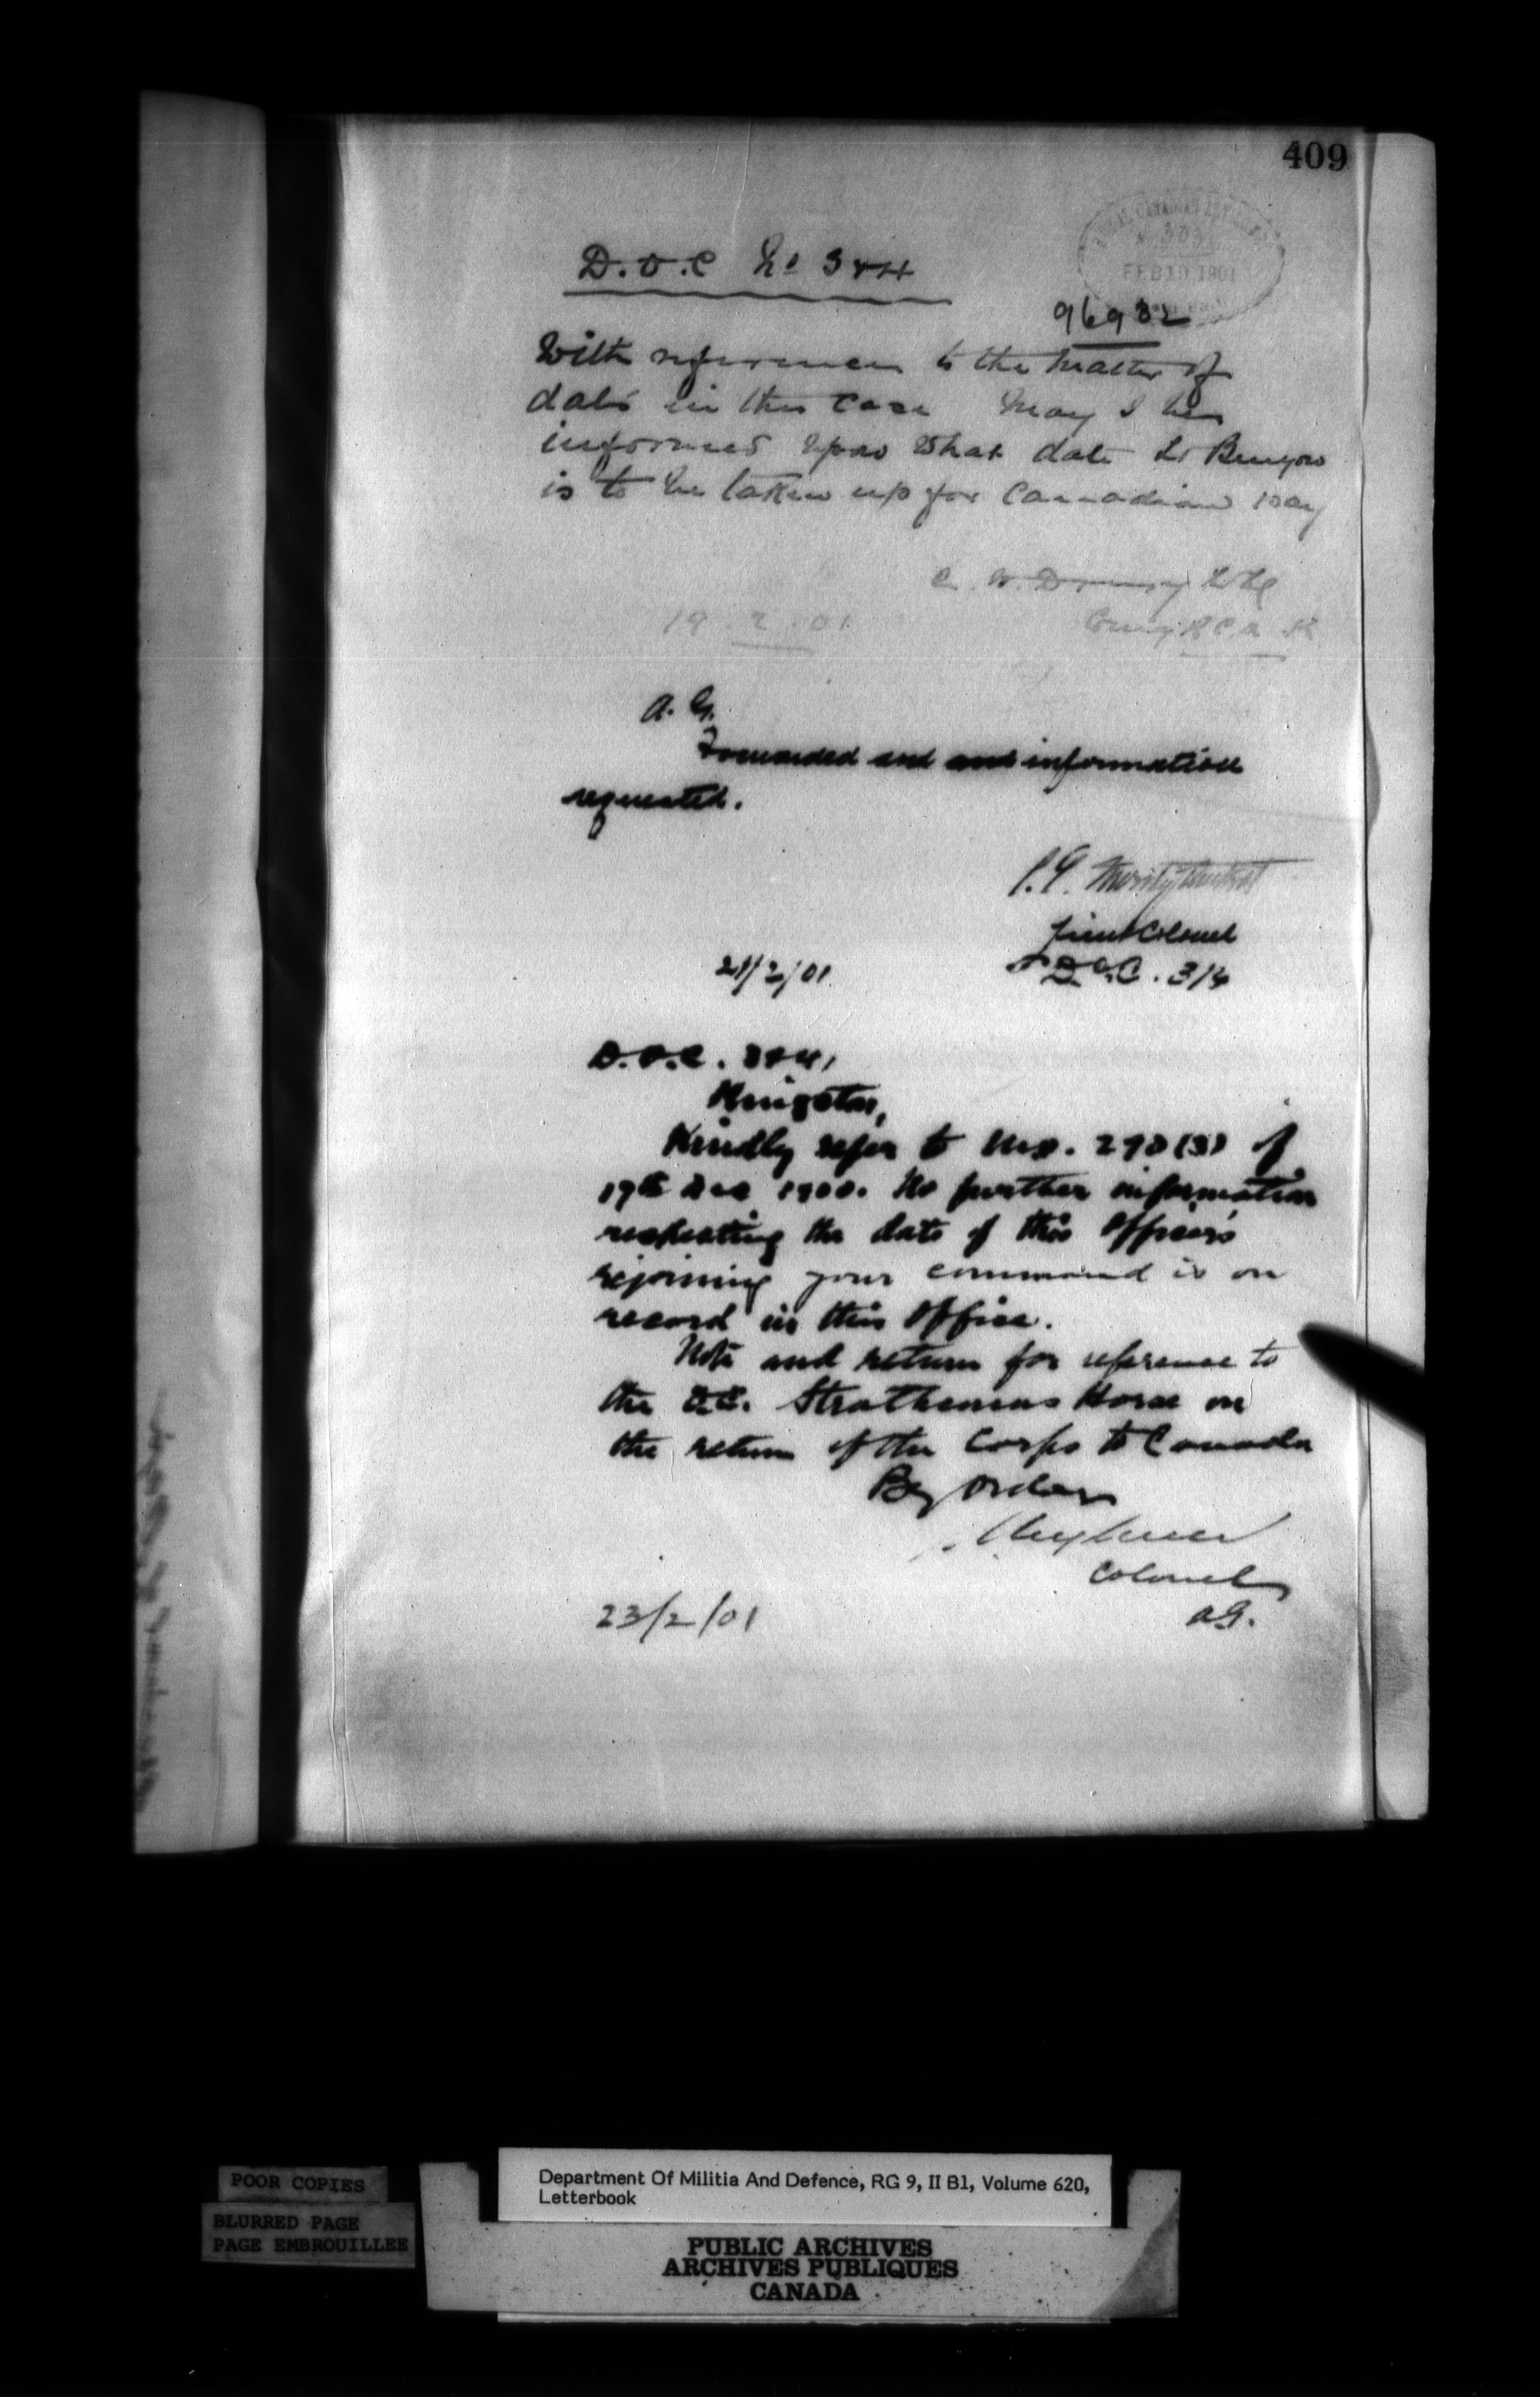 409
FEB 19 1901
D.O.C No 3 & 4
96932
With reference to the matter of
date in this case May I be
informed upon what date Lt Benyon
is to be taken up for Canadian pay
C. W. Drury
19.2.01
A. G.
Forwarded and and information
requested.
Lieut Colonel
D.O.C. 3/4
21/2/01.
D.O.C. 3 & 4,
Kingston,
Kindly refer to 
19th Dec 1900. No further information
respecting the date of this Officer's
rejoining your command is on
record in this Office.
Note and return for reference to
the O.C. Strathconas Horse on
the return of the Corps to Canada
By Order
Colonel
A.G.
23/2/01
POOR COPIES
BLURRED PAGE
PAGE EMBROUILLEE
Department Of Militia And Defence, RG 9, II B1, Volume 620,
Letterbook
PUBLIC ARCHIVES
ARCHIVES PUBLIQUES
CANADA